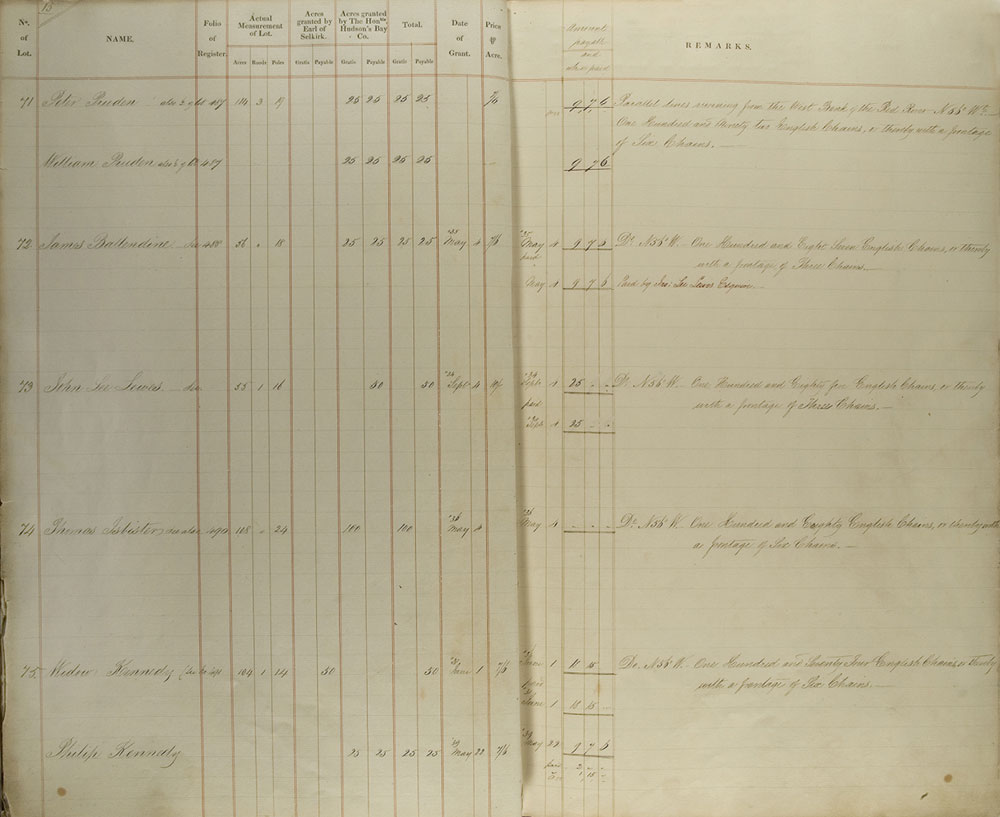 15
No. of Lot.
NAME.
Folio of Register.
Actual Measurement of Lot.
Acres Roods Poles
Acres granted by Earl of Selkirk.
Gratis Payable
Acres granted by The Honble. Hudson's Bay Co.
Gratis Payable
Total.
Gratis Payable
Date of Grant.
Price ⅌ Acre.
Amount payable and when paid
REMARKS.
71 Peter Pruden 487 114 3 19 25 25 25 25 7/6 9 7 6 Parallel lines running from the West Bank of the Red River N 56° W.
One Hundred and Ninety two English Chains, or thereby with a frontage
of Six Chains.
William Pruden 487 25 25 25 25 9 7 6
72 James Ballendine 488 56 18 25 25 25 25 '35 May 4 7/6 May 4 9 7 6 Do. N 56° W. One Hundred and Eighty Seven English Chains, or thereby
paid with a frontage of Three Chains.
May 4 9 7 6 Paid by Jno. Lee Lewis Esquire.
73 John Lee Lewes do 55 1 16 50 50 Sept 4 10/ Sept 4 25 - - Do. N 56° W. One Hundred and Eighty five English Chains, or thereby
paid with a frontage of Three Chains.
Sept 4 25 - -
74 Thomas Isbister 490 108 24 100 100 '36 May 4 '36 May 4 - - - Do. N 56° W. One Hundred and Eighty English Chains, or thereby with
a frontage of Six Chains.
75 Widow Kennedy 491 104 1 14 50 50 June 1 7/6 June 1 18 15 - Do. N 56° W. One Hundred and Seventy Four English Chains, or thereby
paid with a frontage of Six Chains.
June 1 18 15 -
Philip Kennedy 25 25 25 25 '39 May 22 7/6 '39 May 22 9 7 6
paid